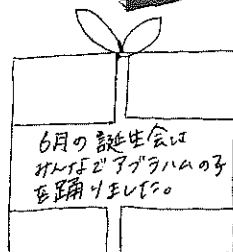 6月の誕生会は
みんなでアブラハムの子
を踊りました。